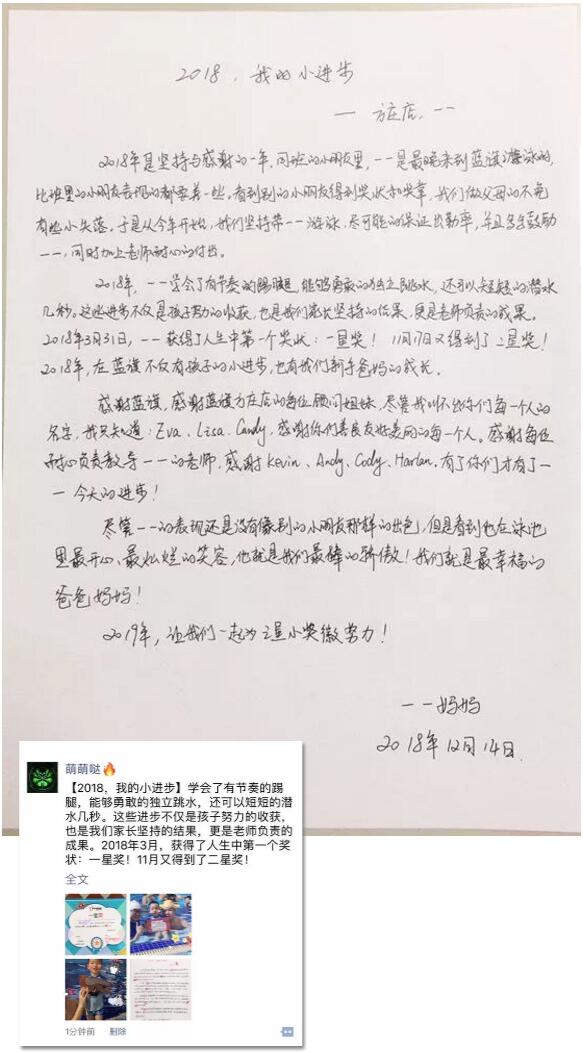 2018，我的小进步
— 方庄店，一一
2018年是坚持与感谢的一年，同班的小朋友里，一一是最晚来到蓝旗游泳的，
比班里的小朋友表现的都要差一些，看到别的小朋友得到奖状和奖章，我们做父母的不免
有些小失落。于是从今年开始，我们坚持带一一游泳，尽可能的保证出勤率，并且多多鼓励
一一，同时加上老师耐心的付出。
2018年，一一学会了有节奏的踢腿，能够勇敢的独立跳水，还可以短短的潜水
几秒。这些进步不仅是孩子努力的收获，也是我们家长坚持的结果，更是老师负责的成果。
2018年3月31日，一一获得了人生中第一个奖状：一星奖！11月17日又得到了二星奖！
2018年，在蓝旗不仅有孩子的小进步，也有我们新手爸妈的成长。
感谢蓝旗，感谢蓝旗方庄店的每位顾问姐妹，尽管我叫不出你们每一个人的
名字，我只知道：Eva、Lisa、Candy，感谢你们善良友好美丽的每一个人。感谢每位
耐心负责教导一一的老师，感谢Kevin、Andy、Cody、Harlan，有了你们才有了一
一今天的进步！
尽管一一的表现还是没有像别的小朋友那样的出色，但是看到他在泳池
里最开心、最灿烂的笑容，他就是我们最棒的骄傲！我们就是最幸福的
爸爸妈妈！
2019年，让我们一起为三星小奖徽努力！
一一妈妈
2018年12月14日
萌萌哒
【2018，我的小进步】学会了有节奏的踢
腿，能够勇敢的独立跳水，还可以短短的潜
水几秒。这些进步不仅是孩子努力的收获，
也是我们家长坚持的结果，更是老师负责的
成果。2018年3月，获得了人生中第一个奖
状：一星奖！11月又得到了二星奖！
全文
一星奖
1分钟前 删除